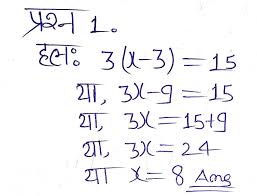 प्रश्न 1.
हलः 3(x-3) = 15
या, 3x-9 = 15
या, 3x = 15+9
या, 3x = 24
या x = 8 Ans